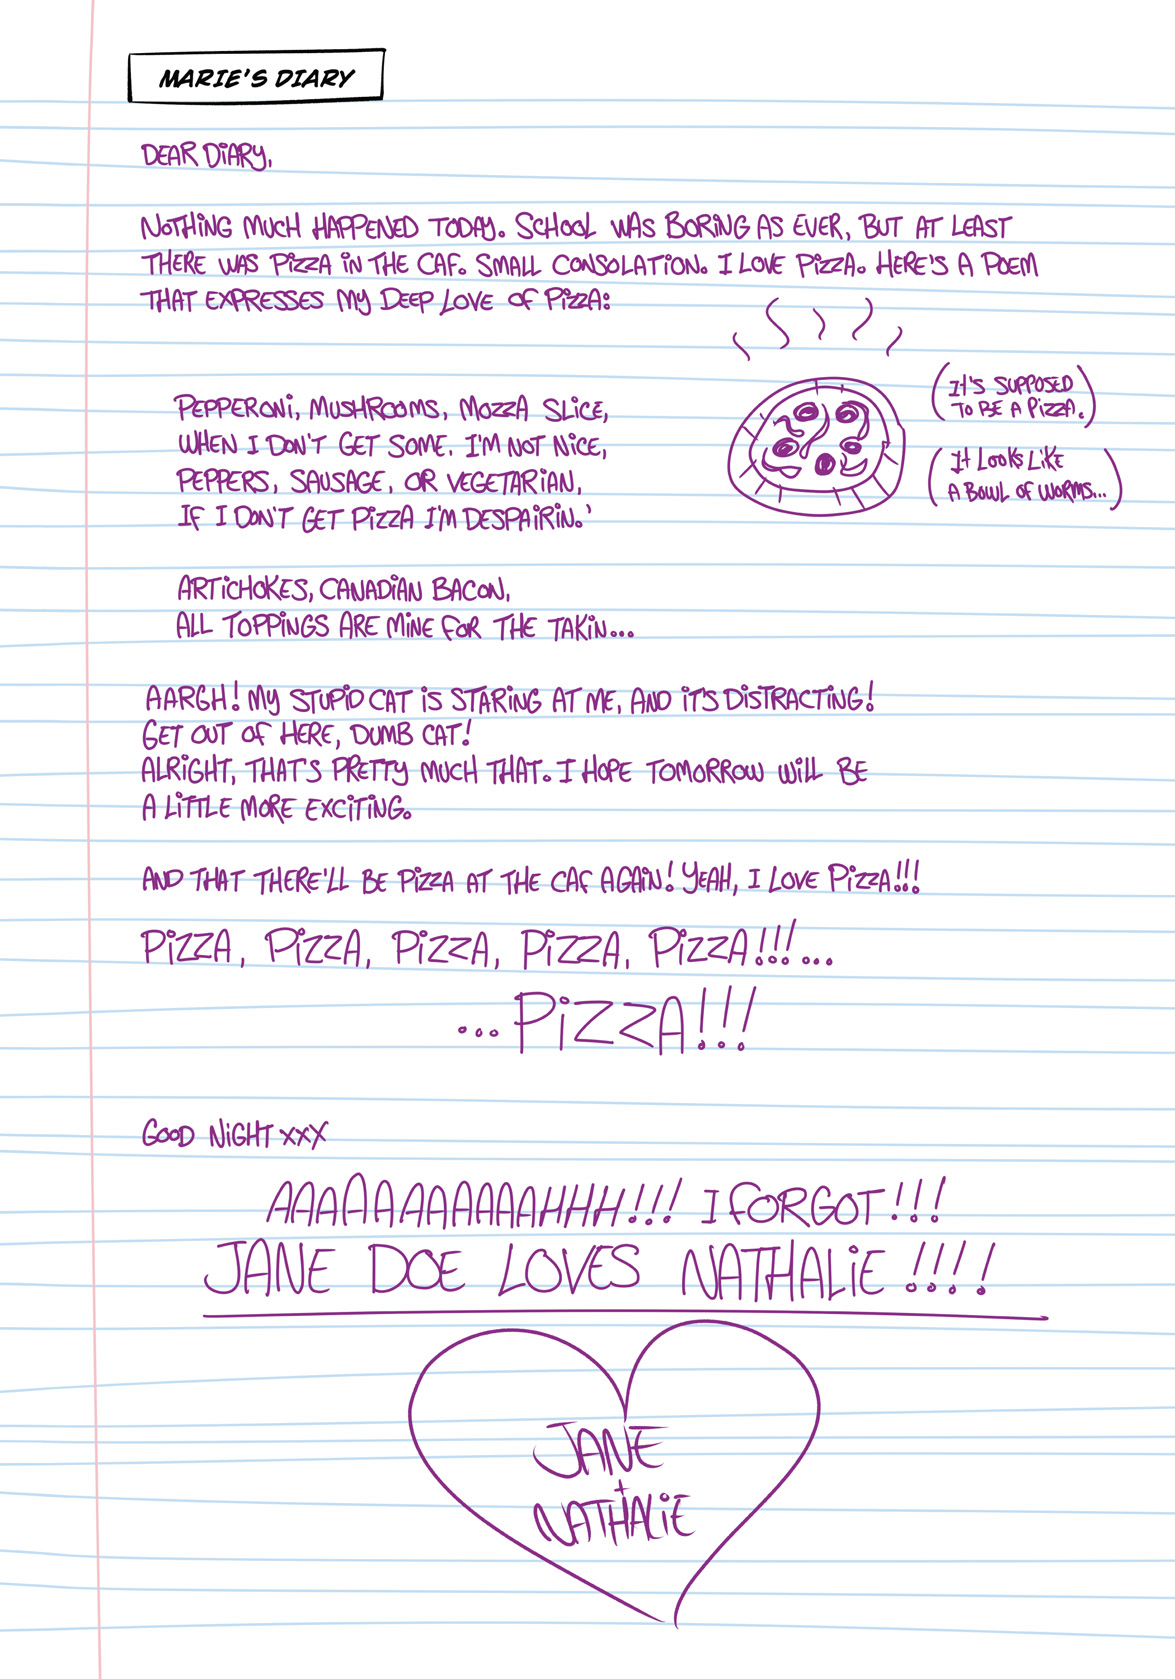 MARIE'S DIARY
DEAR DIARY,
NOTHING MUCH HAPPENED TODAY. SCHOOL WAS BORING AS EVER, BUT AT LEAST
THERE WAS PIZZA IN THE CAF. SMALL CONSOLATION. I LOVE PIZZA. HERE'S A POEM
THAT EXPRESSES MY DEEP LOVE OF PIZZA:
PEPPERONI, MUSHROOMS, MOZZA SLICE,
WHEN I DON'T GET SOME. I'M NOT NICE,
PEPPERS, SAUSAGE, OR VEGETARIAN,
IF I DON'T GET PIZZA I'M DESPAIRIN.'
(IT'S SUPPOSED
TO BE A PIZZA.)
(IT LOOKS LIKE
A BOWL OF WORMS...)
ARTICHOKES, CANADIAN BACON,
ALL TOPPINGS ARE MINE FOR THE TAKIN...
AARGH! MY STUPID CAT IS STARING AT ME, AND IT'S DISTRACTING!
GET OUT OF HERE, DUMB CAT!
ALRIGHT, THAT'S PRETTY MUCH THAT. I HOPE TOMORROW WILL BE
A LITTLE MORE EXCITING.
AND THAT THERE'LL BE PIZZA AT THE CAF AGAIN! YEAH, I LOVE PIZZA!!!
PIZZA, PIZZA, PIZZA, PIZZA, PIZZA!!!...
...PIZZA!!!
GOOD NIGHT XXX
AAAAAAAAAAAHHH!!! I FORGOT!!!
JANE DOE LOVES NATHALIE!!!!
JANE
+
NATHALIE